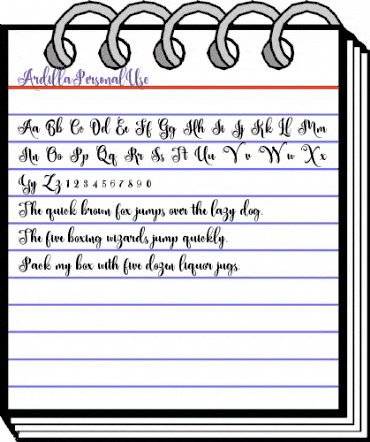 ArdillaPersonalUse
Aa Bb Cc Dd Ee Ff Gg Hh Ii Jj Kk Ll Mm
Nn Oo Pp Qq Rr Ss Tt Uu Vv Ww Xx
Yy Zz 1 2 3 4 5 6 7 8 9 0
The quick brown fox jumps over the lazy dog.
The five boxing wizards jump quickly.
Pack my box with five dozen liquor jugs.